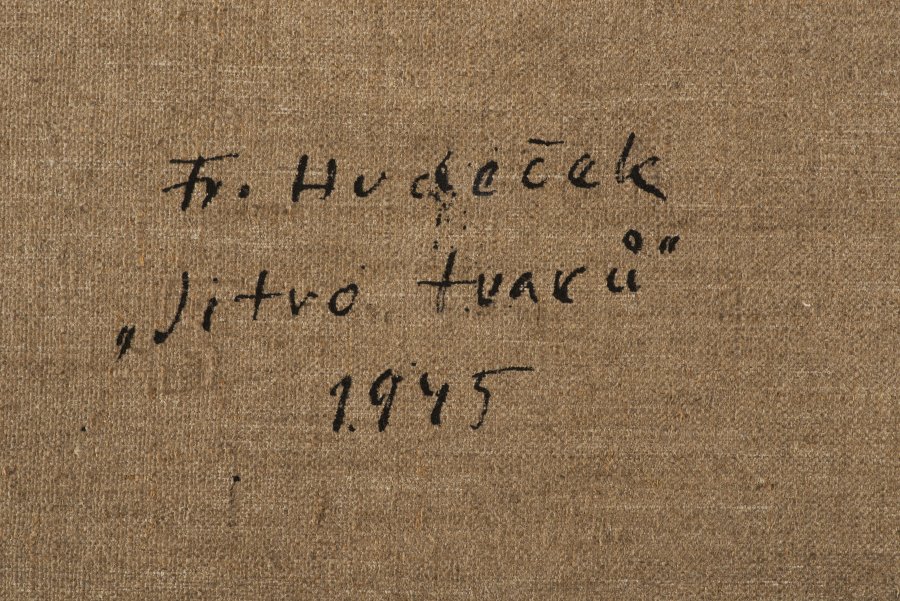 Fr. Hudeček
„Jitvo tvarů"
1945